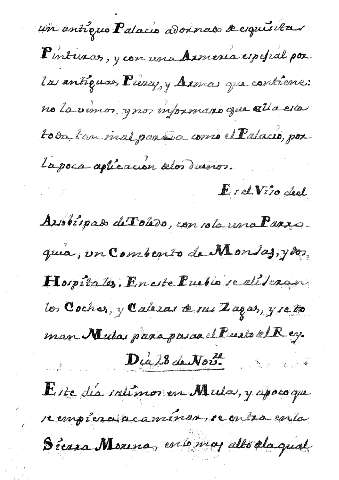 un antiguo Palacio adornado de esquisitas
Pinturas, y con una Armeria espesial por
las antiguas Piesas, y Armas que contiene:
no la vimos, y nos informaro que alla esta
toda tan mal parada como el Palacio, por
la poca aplicacion de los duenos.
Es el Viso de el
Arsobispado de Toledo, con sola una Parro-
quia, un Combento de Monjas, y dos
Hospitales. En este Pueblo se
los Coches, y Calezas de sus Zagas, y se to
man Mulas para pasar el Puerto del Rey.
Dia 28 de Nov.re
Este dia salimos en Mulas, y a poco que
se empieza a caminar, se entra en la
Sierra Morena, en lo mas alto de la qual